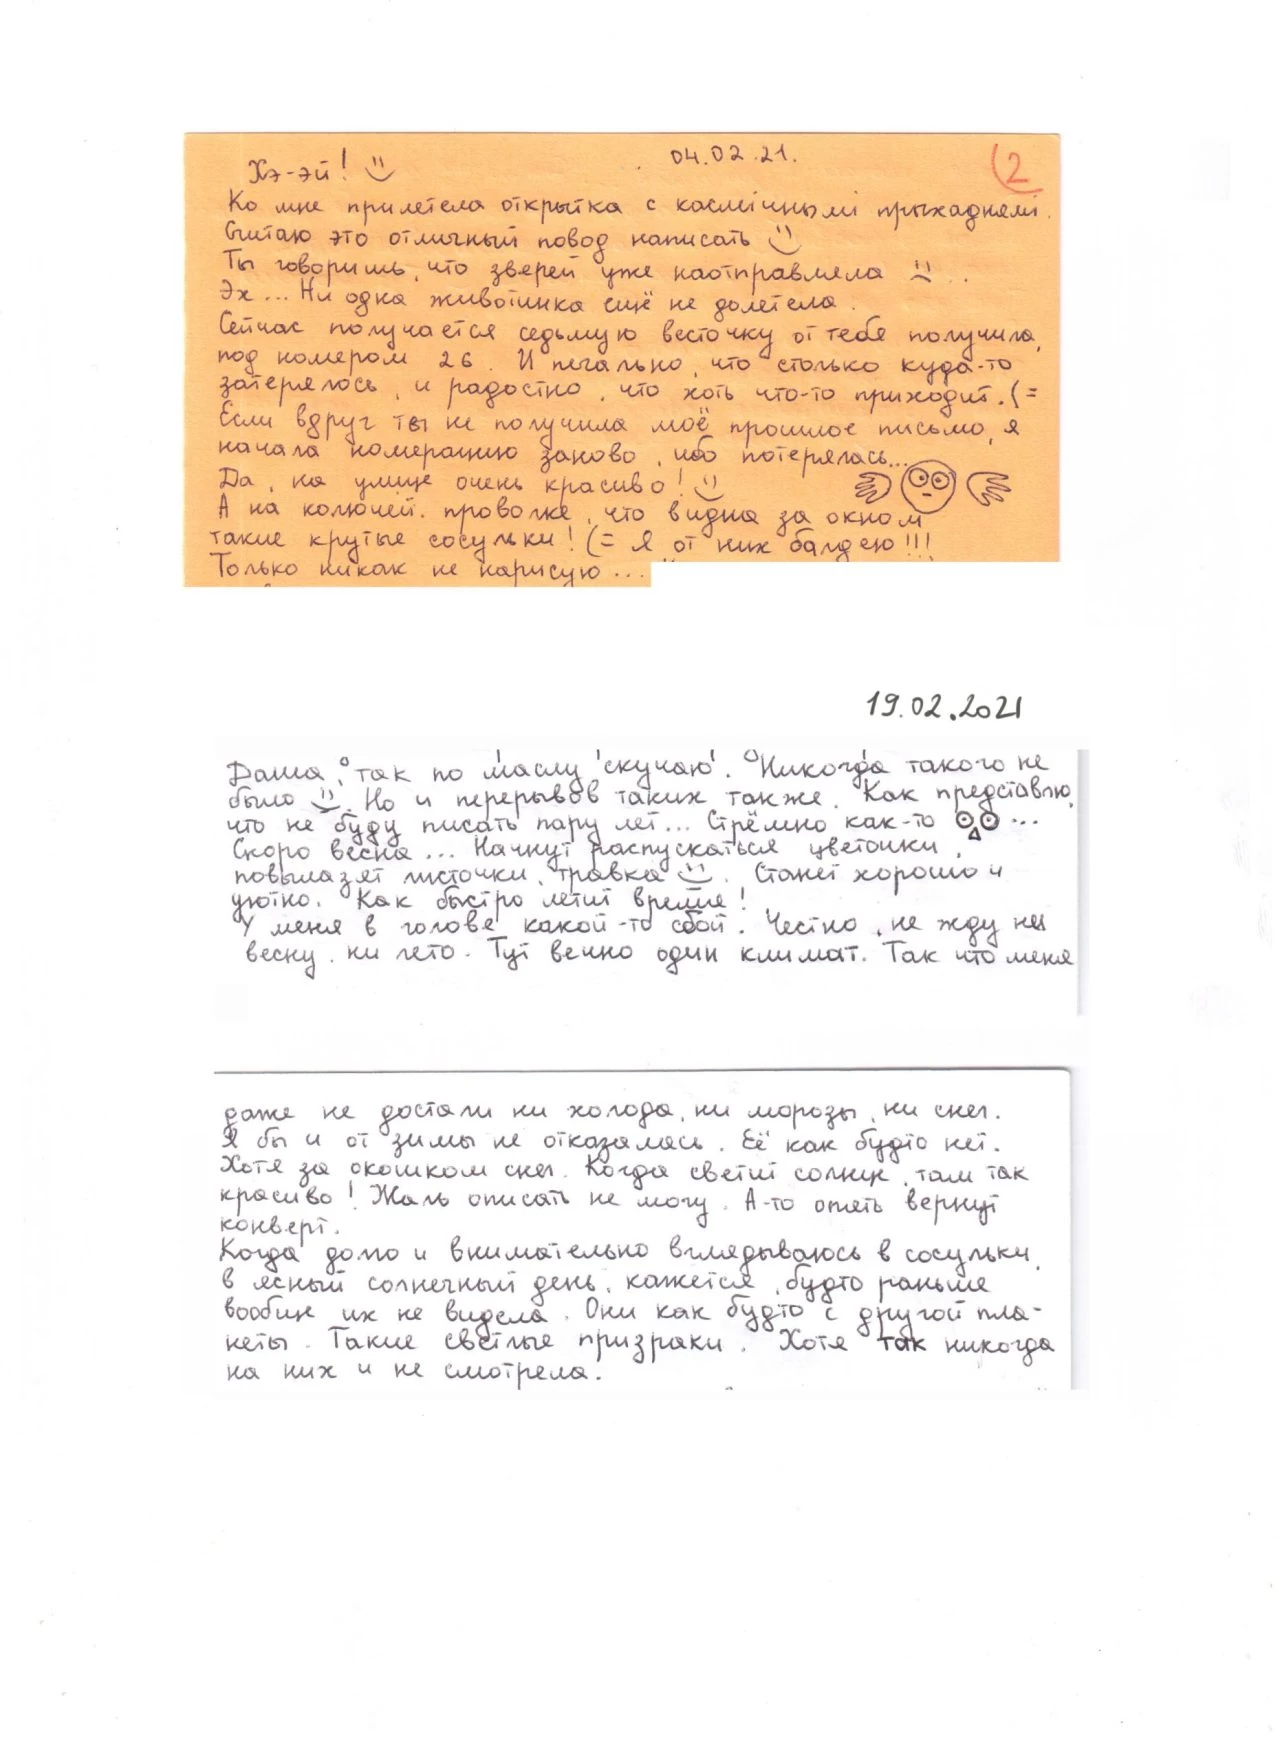 04.02.21.
2
Хэ-эй!
Ко мне прилетела открытка с касмічнымі прыхаднямі.
Считаю это отличный повод написать
Ты говоришь, что зверей уже наотправляла ...
Эх... Ни одна животинка ещё не долетела.
Сейчас получается седьмую весточку от тебя получила,
под номером 26. И печально, что столько куда-то
затерялось, и радостно, что хоть что-то приходит. (=
Если вдруг ты не получила моё прошлое письмо, я
начала нумерацию заново, ибо потерялась...
Да, на улице очень красиво!
А на колючей проволке, что видна за окном
такие крутые сосульки! (= Я от них балдею!!!
Только никак не нарисую...
19.02.2021
Даша, так по маслу скучаю. Никогда такого не
было. Но и перерывов таких также. Как представлю,
что не буду писать пару лет... Стрёмно как-то ...
Скоро весна... Начнут распускаться цветочки,
повылазят листочки, травка. Станет хорошо и
уютно. Как быстро летит время!
У меня в голове какой-то сбой. Честно, не жду ни
весну, ни лето. Тут вечно один климат. Так что меня
даже не достали ни холода, ни морозы, ни снег.
Я бы и от зимы не отказалась. Её как будто нет.
Хотя за окошком снег. Когда светит солнце, там так
красиво! Жаль описать не могу. А-то опять вернут
конверт.
Когда долго и внимательно вглядываюсь в сосульки
в ясный солнечный день, кажется, будто раньше
вообще их не видела. Они как будто с другой пла-
неты. Такие светлые призраки. Хотя так никогда
на них и не смотрела.